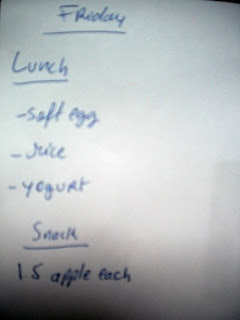 Friday
Lunch
- Soft egg
- Juice
- yogurt
Snack
1.5 apple each